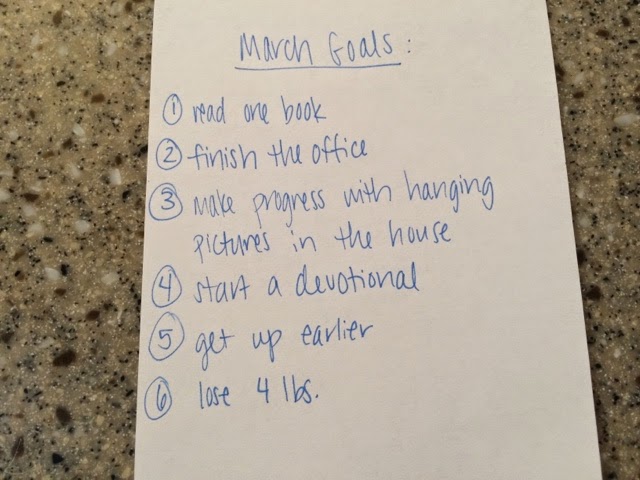 March Goals:
① read one book
② finish the office
③ make progress with hanging
pictures in the house
④ start a devotional
⑤ get up earlier
⑥ lose 4 lbs.